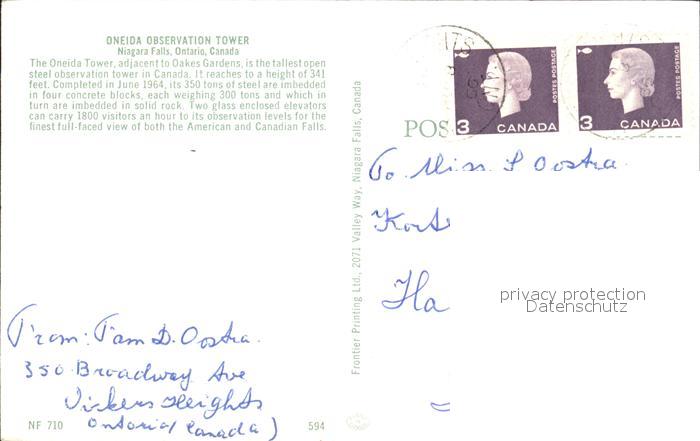 ONEIDA OBSERVATION TOWER
Niagara Falls, Ontario, Canada
The Oneida Tower, adjacent to Oakes Gardens, is the tallest open
steel observation tower in Canada. It reaches to a height of 341
feet. Completed in June 1964, its 350 tons of steel are imbedded
in four concrete blocks, each weighing 300 tons and which in
turn are imbedded in solid rock. Two glass enclosed elevators
can carry 1800 visitors an hour to its observation levels for the
finest full-faced view of both the American and Canadian Falls.
From: Tam D. Oostra.
350 Broadway Ave
Vickers Heights
Ontario (Canada)
NF 710
594
Frontier Printing Ltd., 2071 Valley Way, Niagara Falls, Canada
POSTES POSTAGE
3 CANADA
POSTES POSTAGE
3 CANADA
POS
To. Miss. L Oostra.
Ha
privacy protection
Datenschutz